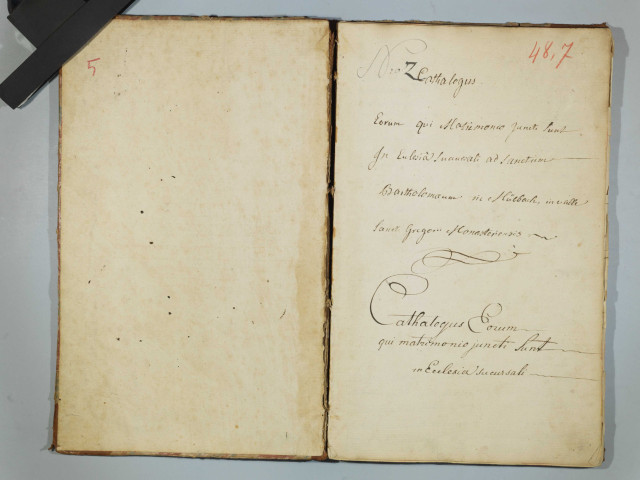 5
48,7
Nro 2 Cathalogus
Eorum qui Matrimonio Juncti Sunt
In Eclesiâ Sucursali ad Sanctum
Bartholomæum in Mülbach in valle
Sanct Gregorii Monasteriensis
Cathalogus Eorum
qui matrimonio juncti Sunt
in Ecclesia sucursali